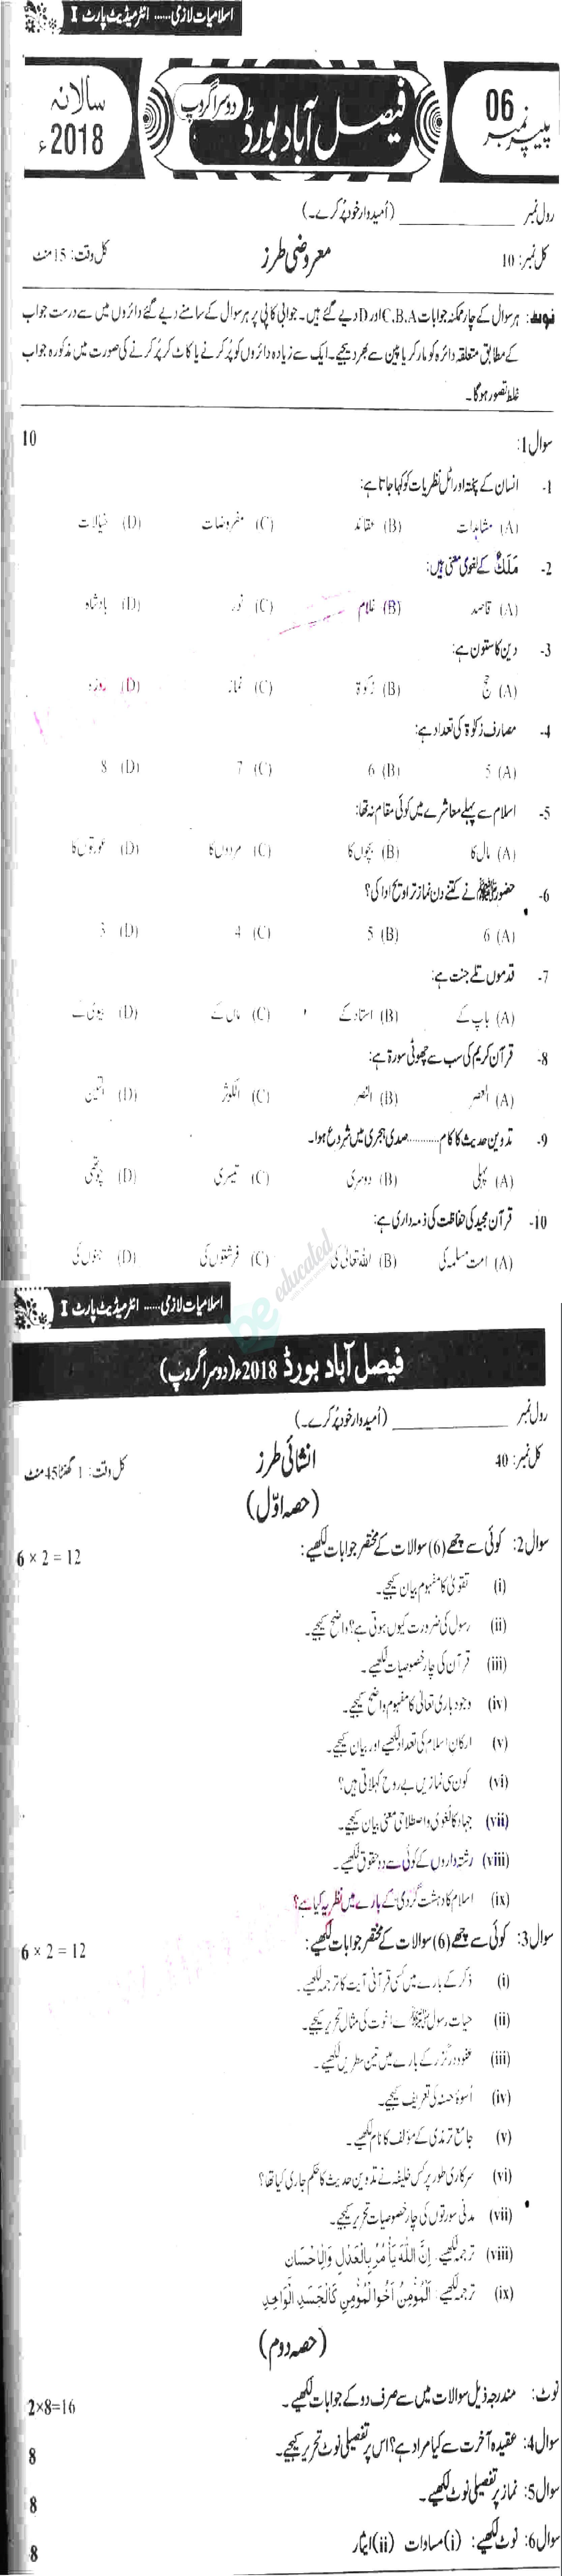 اسلامیات لازمی ..... انٹرمیڈیٹ پارٹ I
پیپر نمبر 06
فیصل آباد بورڈ
دوسرا گروپ
سالانہ 2018ء
رول نمبر ____________ (اُمیدوار خود پُر کرے۔)
کل نمبر: 10 معروضی طرز کل وقت: 15 منٹ
نوٹ: ہر سوال کے چار ممکنہ جوابات C.B.A اور D دیے گئے ہیں۔ جوابی کاپی پر ہر سوال کے سامنے دیے گئے دائروں میں سے درست جواب
کے مطابق متعلقہ دائرہ کو مارکر یا پین سے بھر دیجیے۔ ایک سے زیادہ دائروں کو پُر کرنے یا کاٹ کر پُر کرنے کی صورت میں مذکورہ جواب
غلط تصور ہوگا۔
سوال 1: 10
1- انسان کے پختہ اور اٹل نظریات کو کہا جاتا ہے:
(A) مشاہدات (B) عقائد (C) مفروضات (D) خیالات
2- مَلَکٌ کے لغوی معنی ہیں:
(A) قاصد (B) غلام (C) نور (D) بادشاہ
3- دین کا ستون ہے:
(A) حج (B) زکوٰۃ (C) نماز (D) روزہ
4- مصارف زکوٰۃ کی تعداد ہے:
(A) 5 (B) 6 (C) 7 (D) 8
5- اسلام سے پہلے معاشرے میں کوئی مقام نہ تھا:
(A) مال کا (B) بچوں کا (C) مردوں کا (D) عورتوں کا
6- حضور ﷺ نے کتنے دن نماز تراویح ادا کی؟
(A) 6 (B) 5 (C) 4 (D) 3
7- قدموں تلے جنت ہے:
(A) باپ کے (B) استاد کے (C) ماں کے (D) بیوی کے
8- قرآن کریم کی سب سے چھوٹی سورۃ ہے:
(A) العصر (B) النصر (C) الکوثر (D) التین
9- تدوین حدیث کا کام ........... صدی ہجری میں شروع ہوا۔
(A) پہلی (B) دوسری (C) تیسری (D) چوتھی
10- قرآن مجید کی حفاظت کی ذمہ داری ہے:
(A) امت مسلمہ کی (B) اللہ تعالیٰ کی (C) فرشتوں کی (D) جنوں کی
be educated
اسلامیات لازمی ..... انٹرمیڈیٹ پارٹ I
فیصل آباد بورڈ 2018ء (دوسرا گروپ)
رول نمبر ____________ (اُمیدوار خود پُر کرے۔)
کل نمبر: 40 انشائی طرز کل وقت: 1 گھنٹا 45 منٹ
(حصہ اوّل)
سوال 2: کوئی سے چھے (6) سوالات کے مختصر جوابات لکھیے: 6 × 2 = 12
(i) تقویٰ کا مفہوم بیان کیجیے۔
(ii) رسول کی ضرورت کیوں ہوتی ہے؟ واضح کیجیے۔
(iii) قرآن کی چار خصوصیات لکھیے۔
(iv) وجود باری تعالیٰ کا مفہوم واضح کیجیے۔
(v) ارکانِ اسلام کی تعداد لکھیے اور بیان کیجیے۔
(vi) کون سی نمازیں بے روح کہلاتی ہیں؟
(vii) جہاد کا لغوی و اصطلاحی معنی بیان کیجیے۔
(viii) رشتہ داروں کے کوئی سے دو حقوق لکھیے۔
(ix) اسلام کا دہشت گردی کے بارے میں نظریہ کیا ہے؟
سوال 3: کوئی سے چھے (6) سوالات کے مختصر جوابات لکھیے: 6 × 2 = 12
(i) ذکر کے بارے میں کسی قرآنی آیت کا ترجمہ لکھیے۔
(ii) حیات رسول ﷺ سے اخوت کی مثال تحریر کیجیے۔
(iii) عفو و درگزر کے بارے میں تین سطریں لکھیے۔
(iv) اُسوۂ حسنہ کی تعریف کیجیے۔
(v) جامع ترمذی کے مؤلف کا نام لکھیے۔
(vi) سرکاری طور پر کس خلیفہ نے تدوین حدیث کا حکم جاری کیا تھا؟
(vii) مدنی سورتوں کی چار خصوصیات تحریر کیجیے۔
(viii) ترجمہ لکھیے: اِنَّ اللّٰهَ يَأْمُرُ بِالْعَدْلِ وَالْاِحْسَانِ
(ix) ترجمہ لکھیے: اَلْمُؤْمِنُ اَخُوا لْمُؤْمِنِ كَالْجَسَدِ الْوَاحِدِ
(حصہ دوم)
نوٹ: مندرجہ ذیل سوالات میں سے صرف دو کے جوابات لکھیے۔ 2×8=16
سوال 4: عقیدہ آخرت سے کیا مراد ہے؟ اس پر تفصیلی نوٹ تحریر کیجیے۔ 8
سوال 5: نماز پر تفصیلی نوٹ لکھیے۔ 8
سوال 6: نوٹ لکھیے: (i) مساوات (ii) ایثار 8